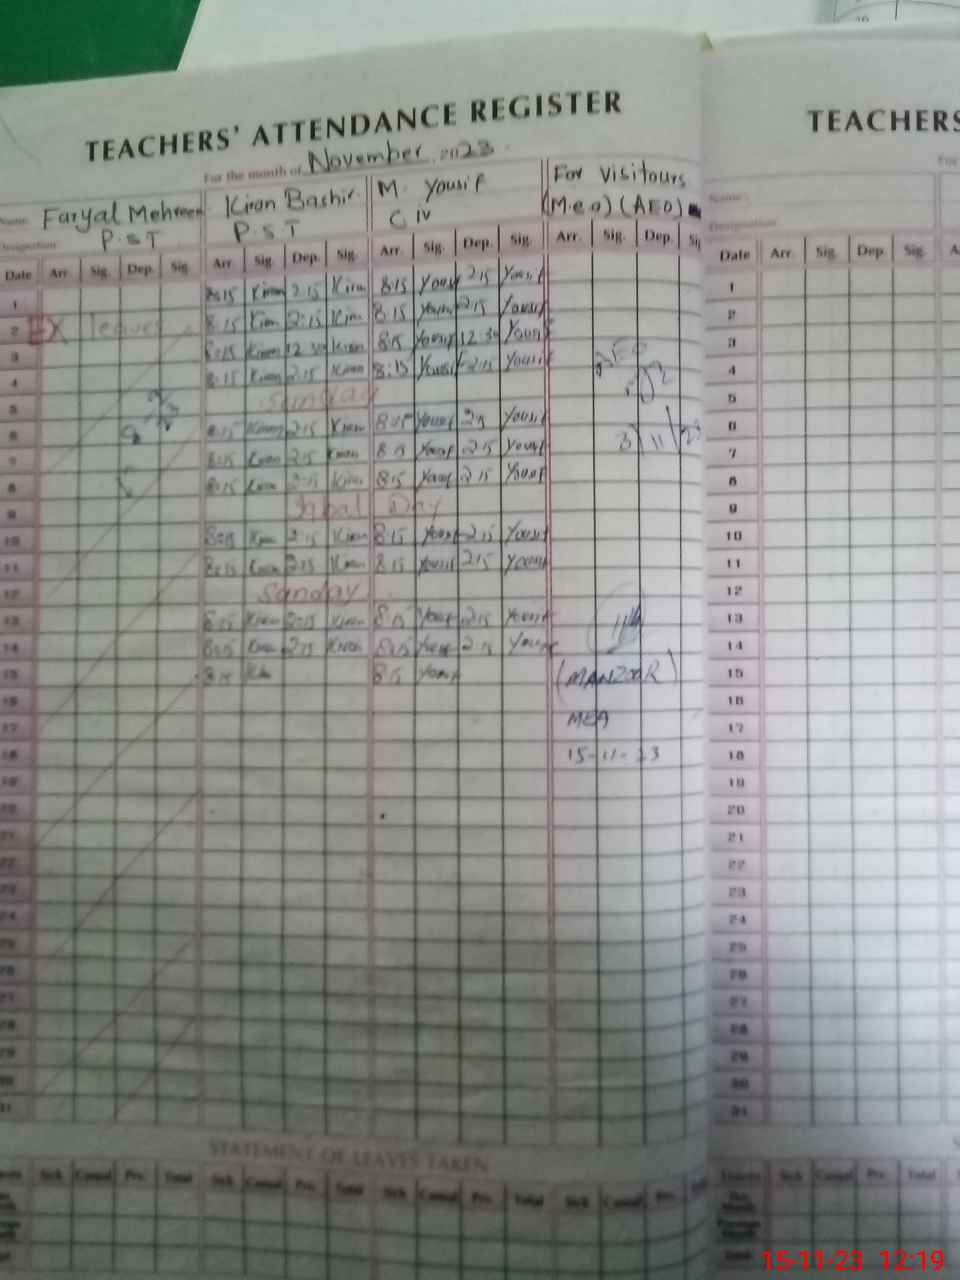 TEACHERS' ATTENDANCE REGISTER
For the month of November 2023
Name Faryal Mehreen Kiran Bashir M. Yousif For visitours
Designation P.S.T P.S.T C iv (M.e.a) (AEO)
Date Arr. Sig. Dep. Sig. Arr. Sig. Dep. Sig. Arr. Sig. Dep. Sig. Arr. Sig. Dep. Sig
1 8:15 Kiran 2:15 Kiran 8:15 Yousif 2:15 Yousif
2 EX leaves 8:15 Kiran 2:15 Kiran 8:15 Yousif 2:15 Yousif
3 8:15 Kiran 12:30 Kiran 8:15 Yousif 12:30 Yousif
4 8:15 Kiran 2:15 Kiran 8:15 Yousif 2:15 Yousif
5 Sunday
6 8:15 Kiran 2:15 Kiran 8:15 Yousif 2:15 Yousif
7 8:15 Kiran 2:15 Kiran 8:15 Yousif 2:15 Yousif 3/11/23
8 8:15 Kiran 2:15 Kiran 8:15 Yousif 2:15 Yousif
9 Iqbal Day
10 8:15 Kiran 2:15 Kiran 8:15 Yousif 2:15 Yousif
11 8:15 Kiran 2:15 Kiran 8:15 Yousif 2:15 Yousif
12 Sanday
13 8:15 Kiran 2:15 Kiran 8:15 Yousif 2:15 Yousif
14 8:15 Kiran 2:15 Kiran 8:15 Yousif 2:15 Yousif
15 8:15 Kiran 8:15 Yousif (MANZOOR)
16 MEA
17
18 15-11-23
19
20
21
22
23
24
25
26
27
28
29
30
31
STATEMENT OF LEAVES TAKEN
Sick Casual Prv. Total Sick Casual Prv. Total Sick Casual Prv. Total Sick Casual Prv.
TEACHERS
Name
Designation
Date Arr. Sig. Dep. Sig.
1
2
3
4
5
6
7
8
9
10
11
12
13
14
15
16
17
18
19
20
21
22
23
24
25
26
27
28
29
30
31
Leaves Sick Casual Prv. Total
Total
15-11-23 12:19